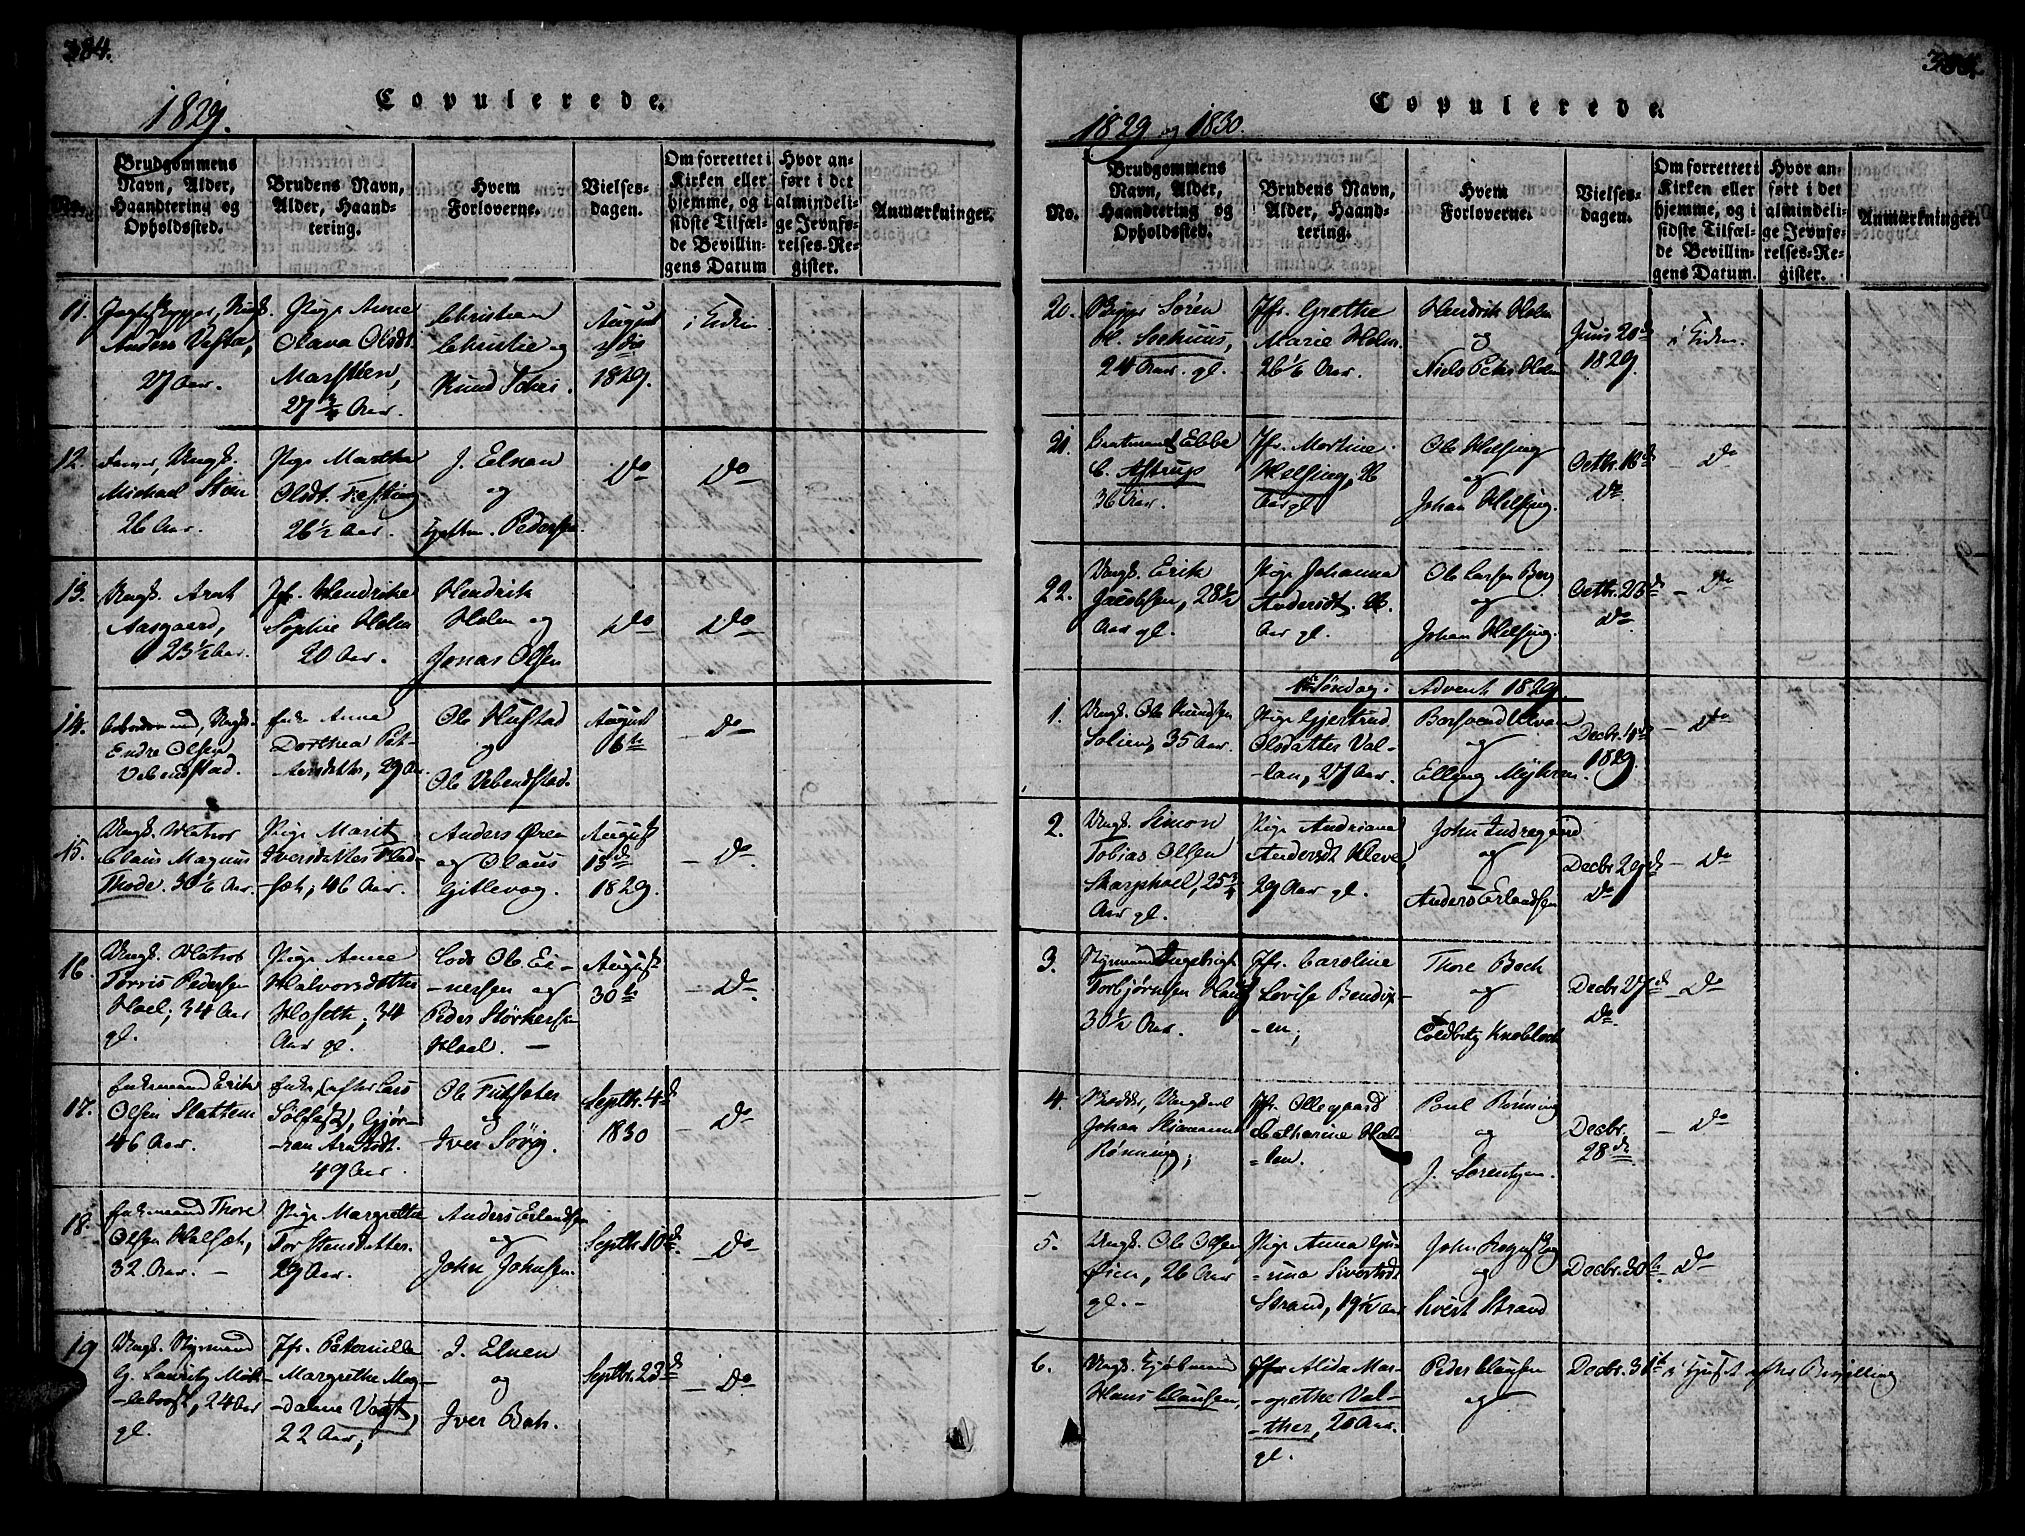 384.
1829.
Copulerede.
No.
Brudgommens
Navn, Alder,
Haandtering og
Opholdssted.
Brudens Navn,
Alder, Haand-
tering.
Hvem
Forloverne.
Vielses-
dagen.
Om forrettet i
Kirken eller
hjemme, og i
sidste Tilfæl-
de Bevillin-
gens Datum
Hvor an-
ført i det
almindeli-
ge Jevnfø-
relses-Re-
gister.
Anmærkninger.
11.
Anders
27 Aar.
Pige Anne
Olava Olsdt.
27 3/4 Aar.
Christian
Christie og
Knud
August
1829.
i Kirken
12
Ungk.
Michael Sten
26 Aar.
Pige Martha
Olsdt.
26 1/2 Aar.
J. Elnan
og
Pedersen
Do
Do
13.
Ungk. Arnt
Aasgaard,
25 1/2 Aar.
Jfr. Hendrike
Sophie Holm
20 Aar.
Hendrik
Holm og
Jonas Olsen
Do
Do
14.
Ungk.
Endre Olsen
Vebenstad.
Enke Anne
Dorthea Pet-
-tersdatter, 29 Aar.
Ole Hustad
og
Ole Vebenstad.
August
16te
Do
15.
Ungk. Matros
Claus Magnus
Thode. 30 1/2 Aar.
Pige Marit
Iversdatter Had-
-seth; 46 Aar.
Anders Øren
og Olaus
Gitlevog.
August
1829.
Do
16.
Ungk. Matros
Torris Pedersen
Hoel; 34 Aar
gl.
Pige Anne
Halvorsdatter
Hoseth; 34
Aar gl.
Lods Ole Ei-
-nersen og
Peder Størkersen
Hoel.
August
30te
Do
17.
Enkemand Erik
Olsen Slattem
46 Aar.
Enke (efter Lars
Arntsdt.
49 Aar.
Ole
og
Iver Sørig.
Septbr. 4de
1830
Do
18.
Enkemand Thore
Olsen Halseth,
32 Aar.
Pige Margrethe
Torstensdatter.
29 Aar.
Anders Erlandsen
og
John Johnsen.
Septbr. 10de.
Do
19
Ungk. Styrmand
G. Lauritz
24 Aar
gl.
Jfr. Petronille
Margrethe Mag-
dalene Vogt,
22 Aar;
J. Elnan
og
Iver Boh.
Septbr. 23de
Do
1829 og 1830
Copulerede.
No.
Brudgommens
Navn, Alder,
Haandtering og
Opholdssted.
Brudens Navn,
Alder, Haand-
tering.
Hvem
Forloverne.
Vielses-
dagen.
Om forrettet i
Kirken eller
hjemme, og i
sidste Tilfæl-
de Bevillin-
gens Datum.
Hvor an-
ført i det
almindeli-
ge Jevnfø-
relses-Re-
gister.
Anmærkninger.
20.
Søren
24 Aar. gl.
Jfr. Grethe
Marie Holm.
26 1/6 Aar.
Hendrik Holm
og
Niels Peter Holm
Juni 20de
1829.
i Kirken.
21.
Ebbe
C. Astrup
36 Aar.
Jfr. Martine
Helsing, 26
Aar gl.
Ole Helsing
og
Johan Helsing.
Octbr. 16de
Do.
Do
22.
Ungk. Erik
Jacobsen, 28 1/2
Aar gl.
Pige Johanna
Andersdt.
Aar gl.
Ole Larsen Berg
og
Johan Helsing.
Do
Do
1te Søndag i Advent 1829.
1.
Ungk. Ole Knudsen
Solien, 35 Aar.
Pige Gjertrud
Olsdatter Val-
-lan, 27 Aar.
og
Elling Myhren.
Decbr.
1829.
Do
2.
Ungk. Simon
Tobias Olsen
25 3/4
Aar gl.
Pige Andriana
Andersdt. Kleve,
29 Aar gl.
John
og
Anders Erlandsen
Decbr. 29de
Do
Do
3.
Styrmand Ingebrigt
Torbjørnsen
30 1/2 Aar.
Jfr. Caroline
Lovise Bendix-
-en;
Thore Boch
og
Knobloch
Decbr. 27de
Do.
Do
4.
Johan
Rønning;
Jfr. Ollegaard
Catharine
Poul Rønning
og
J. Lorentzen.
Decbr.
28de
Do
5.
Ungk. Ole Olsen
Øien, 26 Aar
gl.
Pige Anna Gu-
-runa Sivertsdt.
Strand, 19 1/2 Aar
John
og
Sivert Strand
Decbr. 30te.
Do
6.
Ungk. Kjøbmand
Hans Clausen,
Jfr. Alida Mar-
-grethe Val-
-ther, 20 Aar.
gl.
Peder Clausen
og
Decbr. 31te
i Huset efter Bevilling